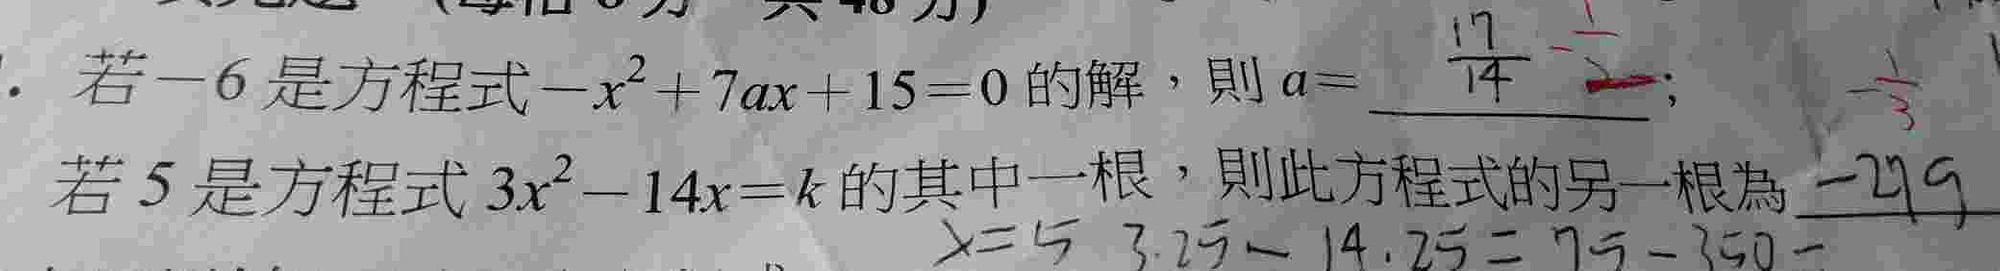 若－6 是方程式－x²＋7ax＋15＝0 的解，則 a＝ 17/14 -1/2 ;
-1/3
若 5 是方程式 3x²－14x＝k 的其中一根，則此方程式的另一根為 -279
x=5 3.25- 14.25= 75-350-